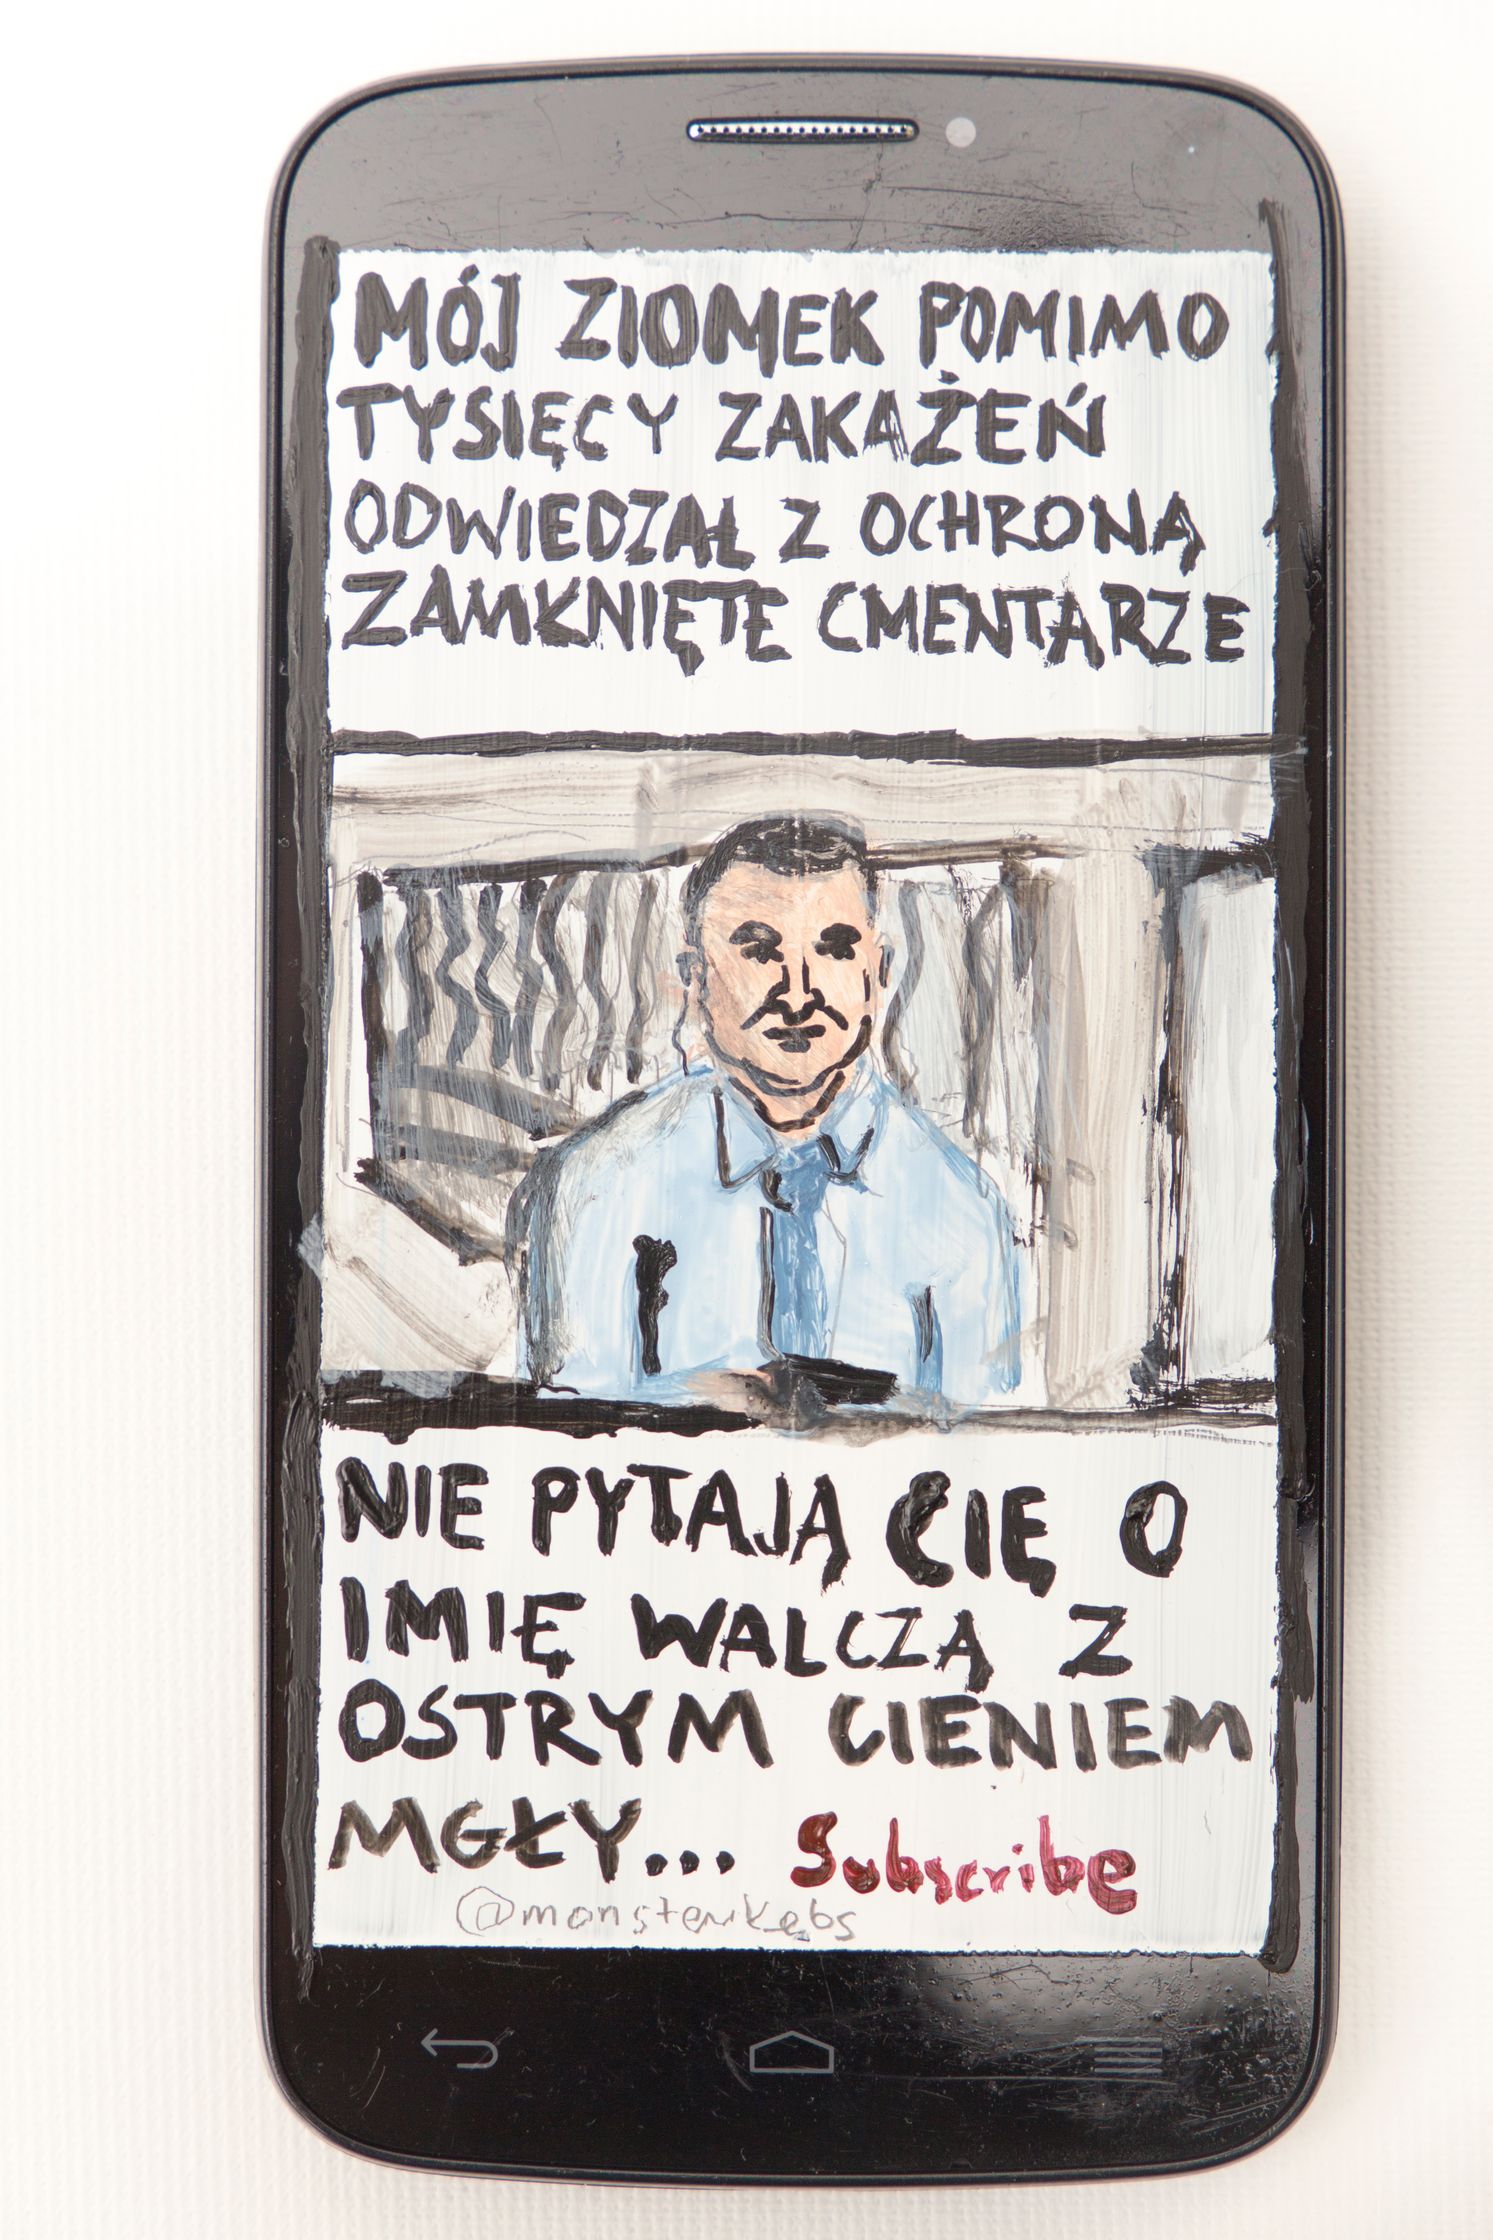 MÓJ ZIOMEK POMIMO
TYSIĘCY ZAKAŻEŃ
ODWIEDZAŁ Z OCHRONĄ
ZAMKNIĘTE CMENTARZE
NIE PYTAJĄ CIĘ O
IMIĘ WALCZĄ Z
OSTRYM CIENIEM
MGŁY... Subscribe
@monsterkebs